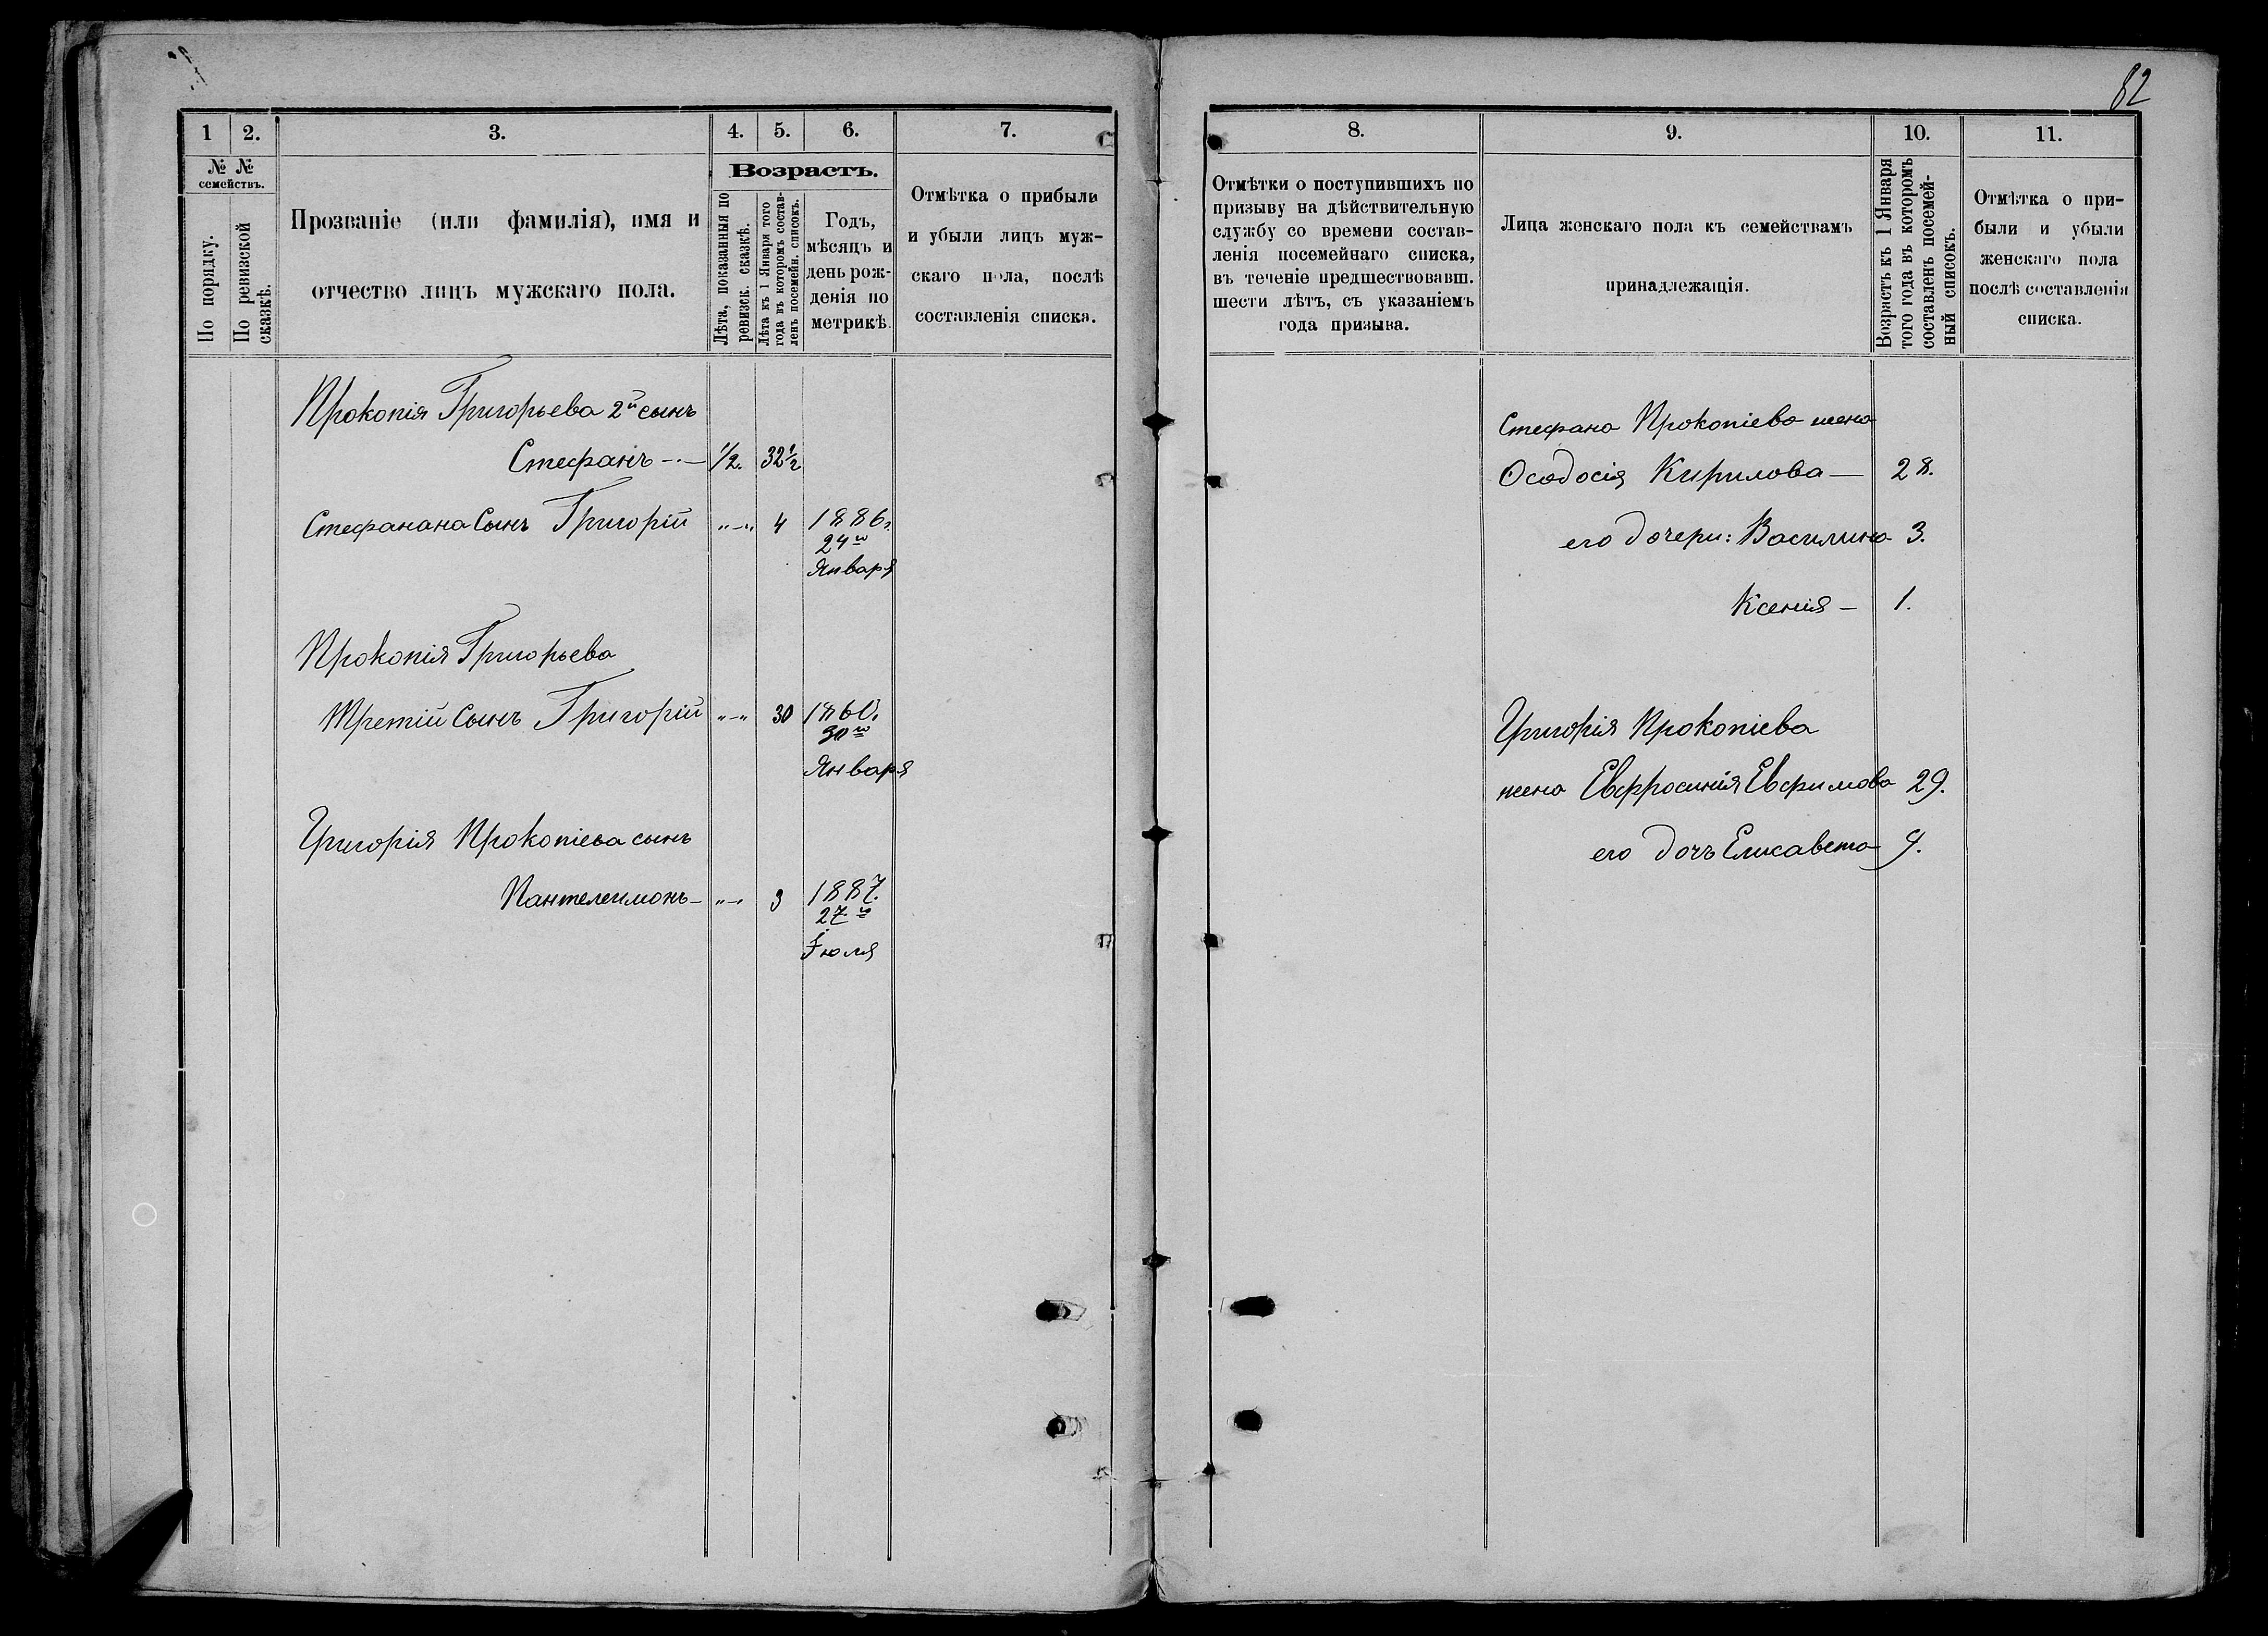 82
1 2. 3. 4. 5. 6. 7.
№ № семействъ.
По порядку.
По ревизской сказкѣ.
Прозваніе (или фамилія), имя и
отчество лицъ мужскаго пола.
Возрастъ.
Лѣта, показанныя по
ревизск. сказкѣ.
Лѣта къ 1 Января того
года въ которомъ состав-
ленъ посемейн. списокъ.
Годъ,
мѣсяцъ и
день рож-
денія по
метрикѣ.
Отмѣтка о прибыли
и убыли лицъ муж-
скаго пола, послѣ
составленія списка.
Прокопія Григорьева 2й сынъ
Стефанъ -.- 1/2. 32 1/2
Стефанана Сынъ Григорій „-„ 4 1886г.
24го
Января
Прокопія Григорьева
Третій Сынъ Григорій „-„ 30 1860.
30го
Января
Григорія Прокопіева сынъ
Пантелеимонъ- „-„ 3 1887.
27.го
Іюля
8. 9. 10. 11.
Отмѣтки о поступившихъ по
призыву на дѣйствительную
службу со времени состав-
ленія посемейнаго списка,
въ теченіе предшествовавш.
шести лѣтъ, съ указаніемъ
года призыва.
Лица женскаго пола къ семействамъ
принадлежащія.
Возрастъ къ 1 Января
того года въ которомъ
составленъ посемей-
ный списокъ.
Отмѣтка о при-
были и убыли
женскаго пола
послѣ составленія
списка.
Стефана Прокопіева жена
Ѳеодосія Кирилова — 28.
его дочери: Василина 3.
Ксенія — 1.
Григорія Прокопіева
жена Евфросинія Евфимова 29.
его дочъ Елисавета 9.